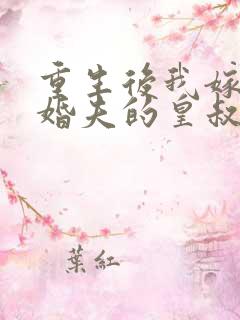 重生後我嫁
婚夫的皇叔
葉紅